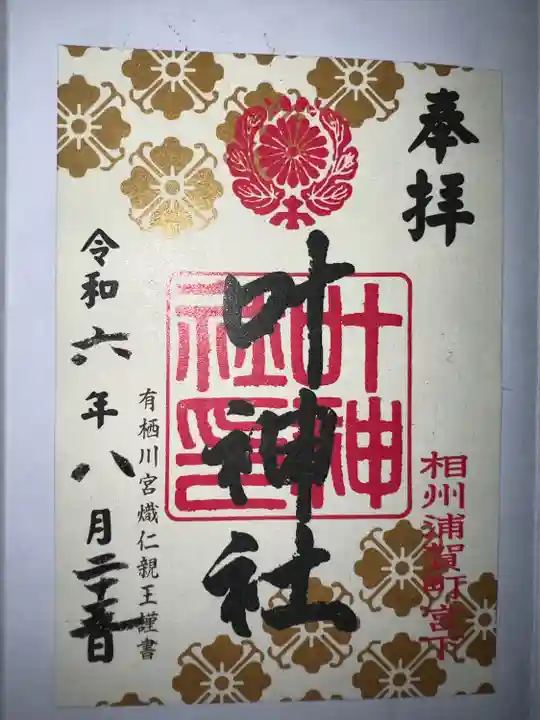 奉拝
相州浦賀町宮下
叶神社印
叶神社
有栖川宮熾仁親王謹書
令和六年八月二十五日